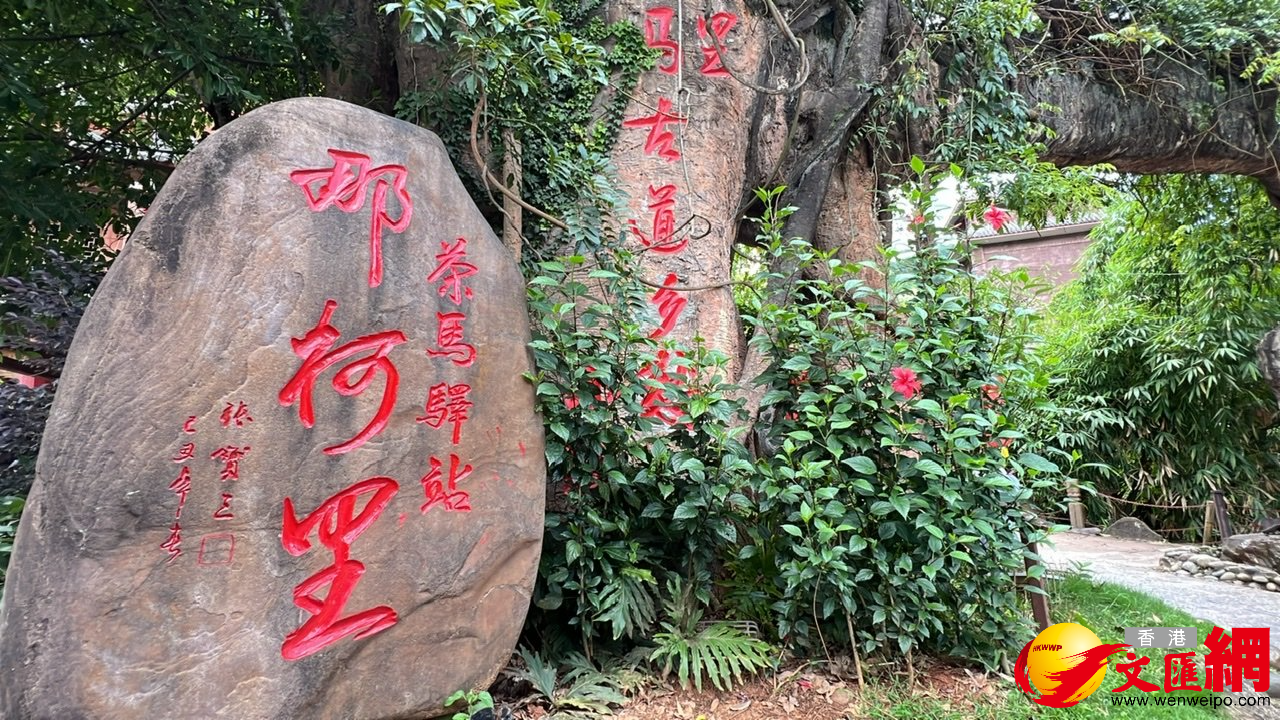 茶馬驛站
那柯里
張寶三
己丑年春
里
马古道乡愁
HKWWP
香港
文匯網
www.wenweipo.com